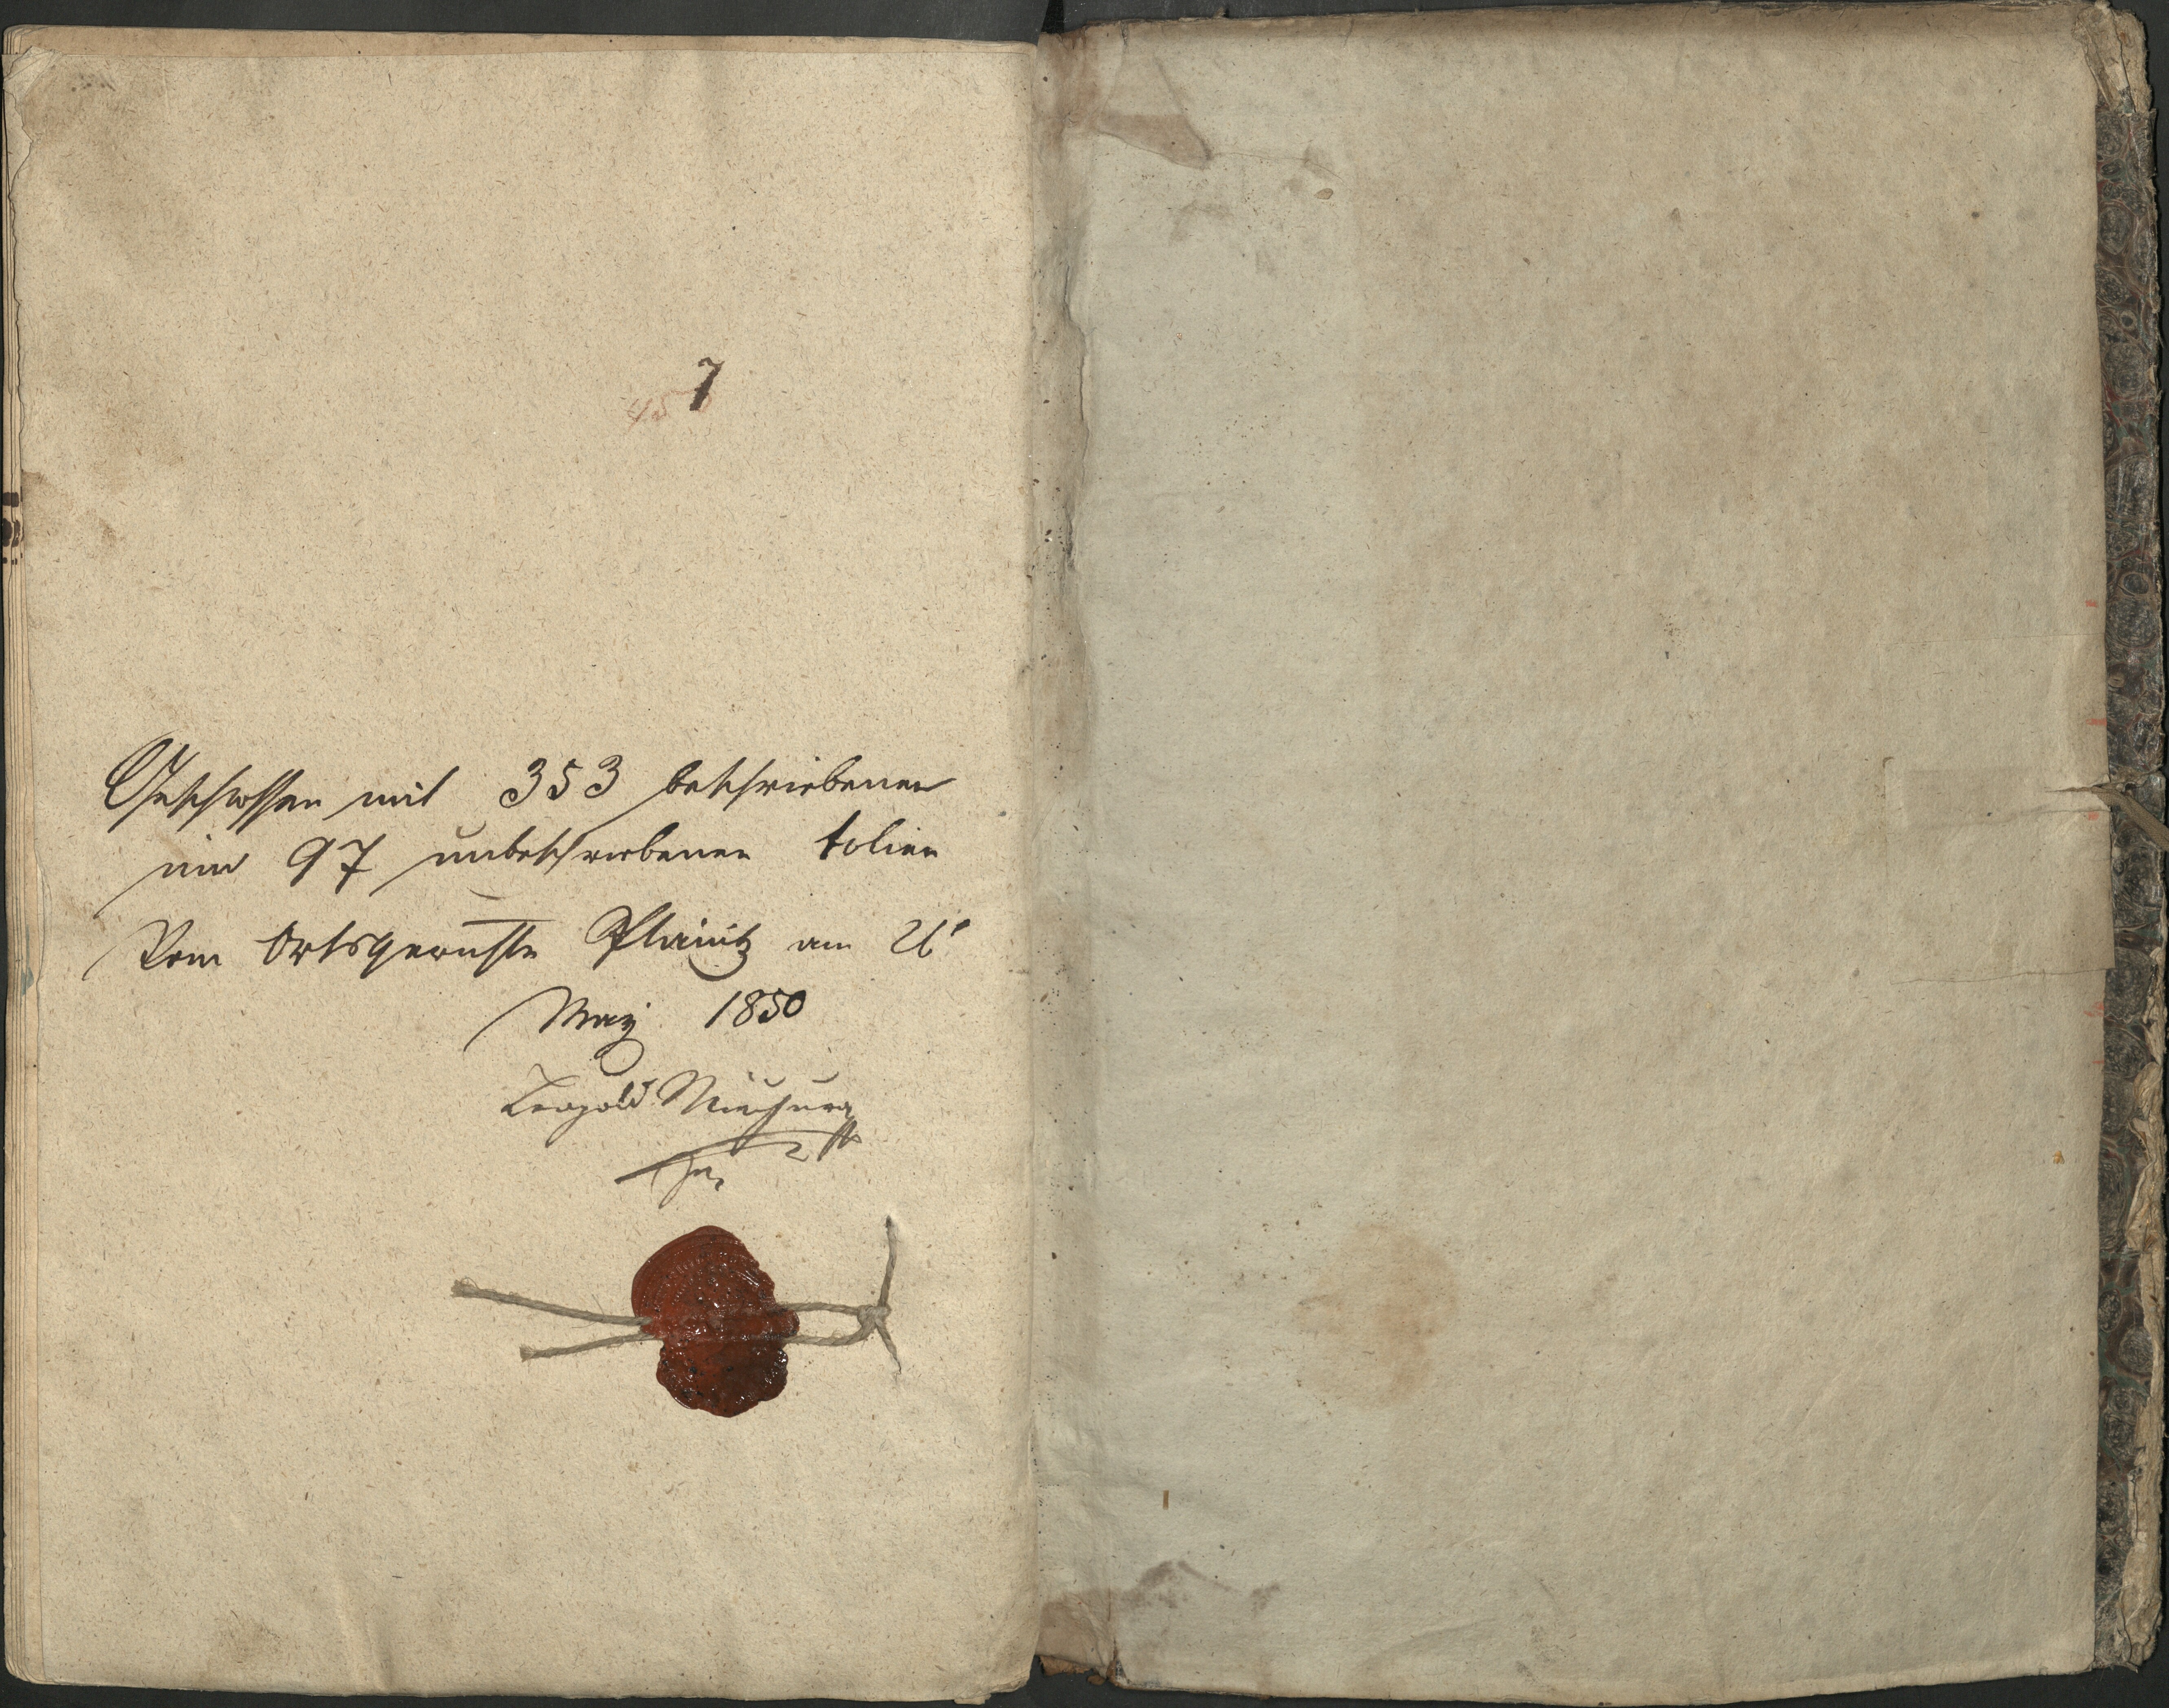 7
450
Geschlossen mit 353 beschriebenen
und 97 unbeschriebenen folien
Vom Ortsgerichte Planitz am
May 1850
Leopold